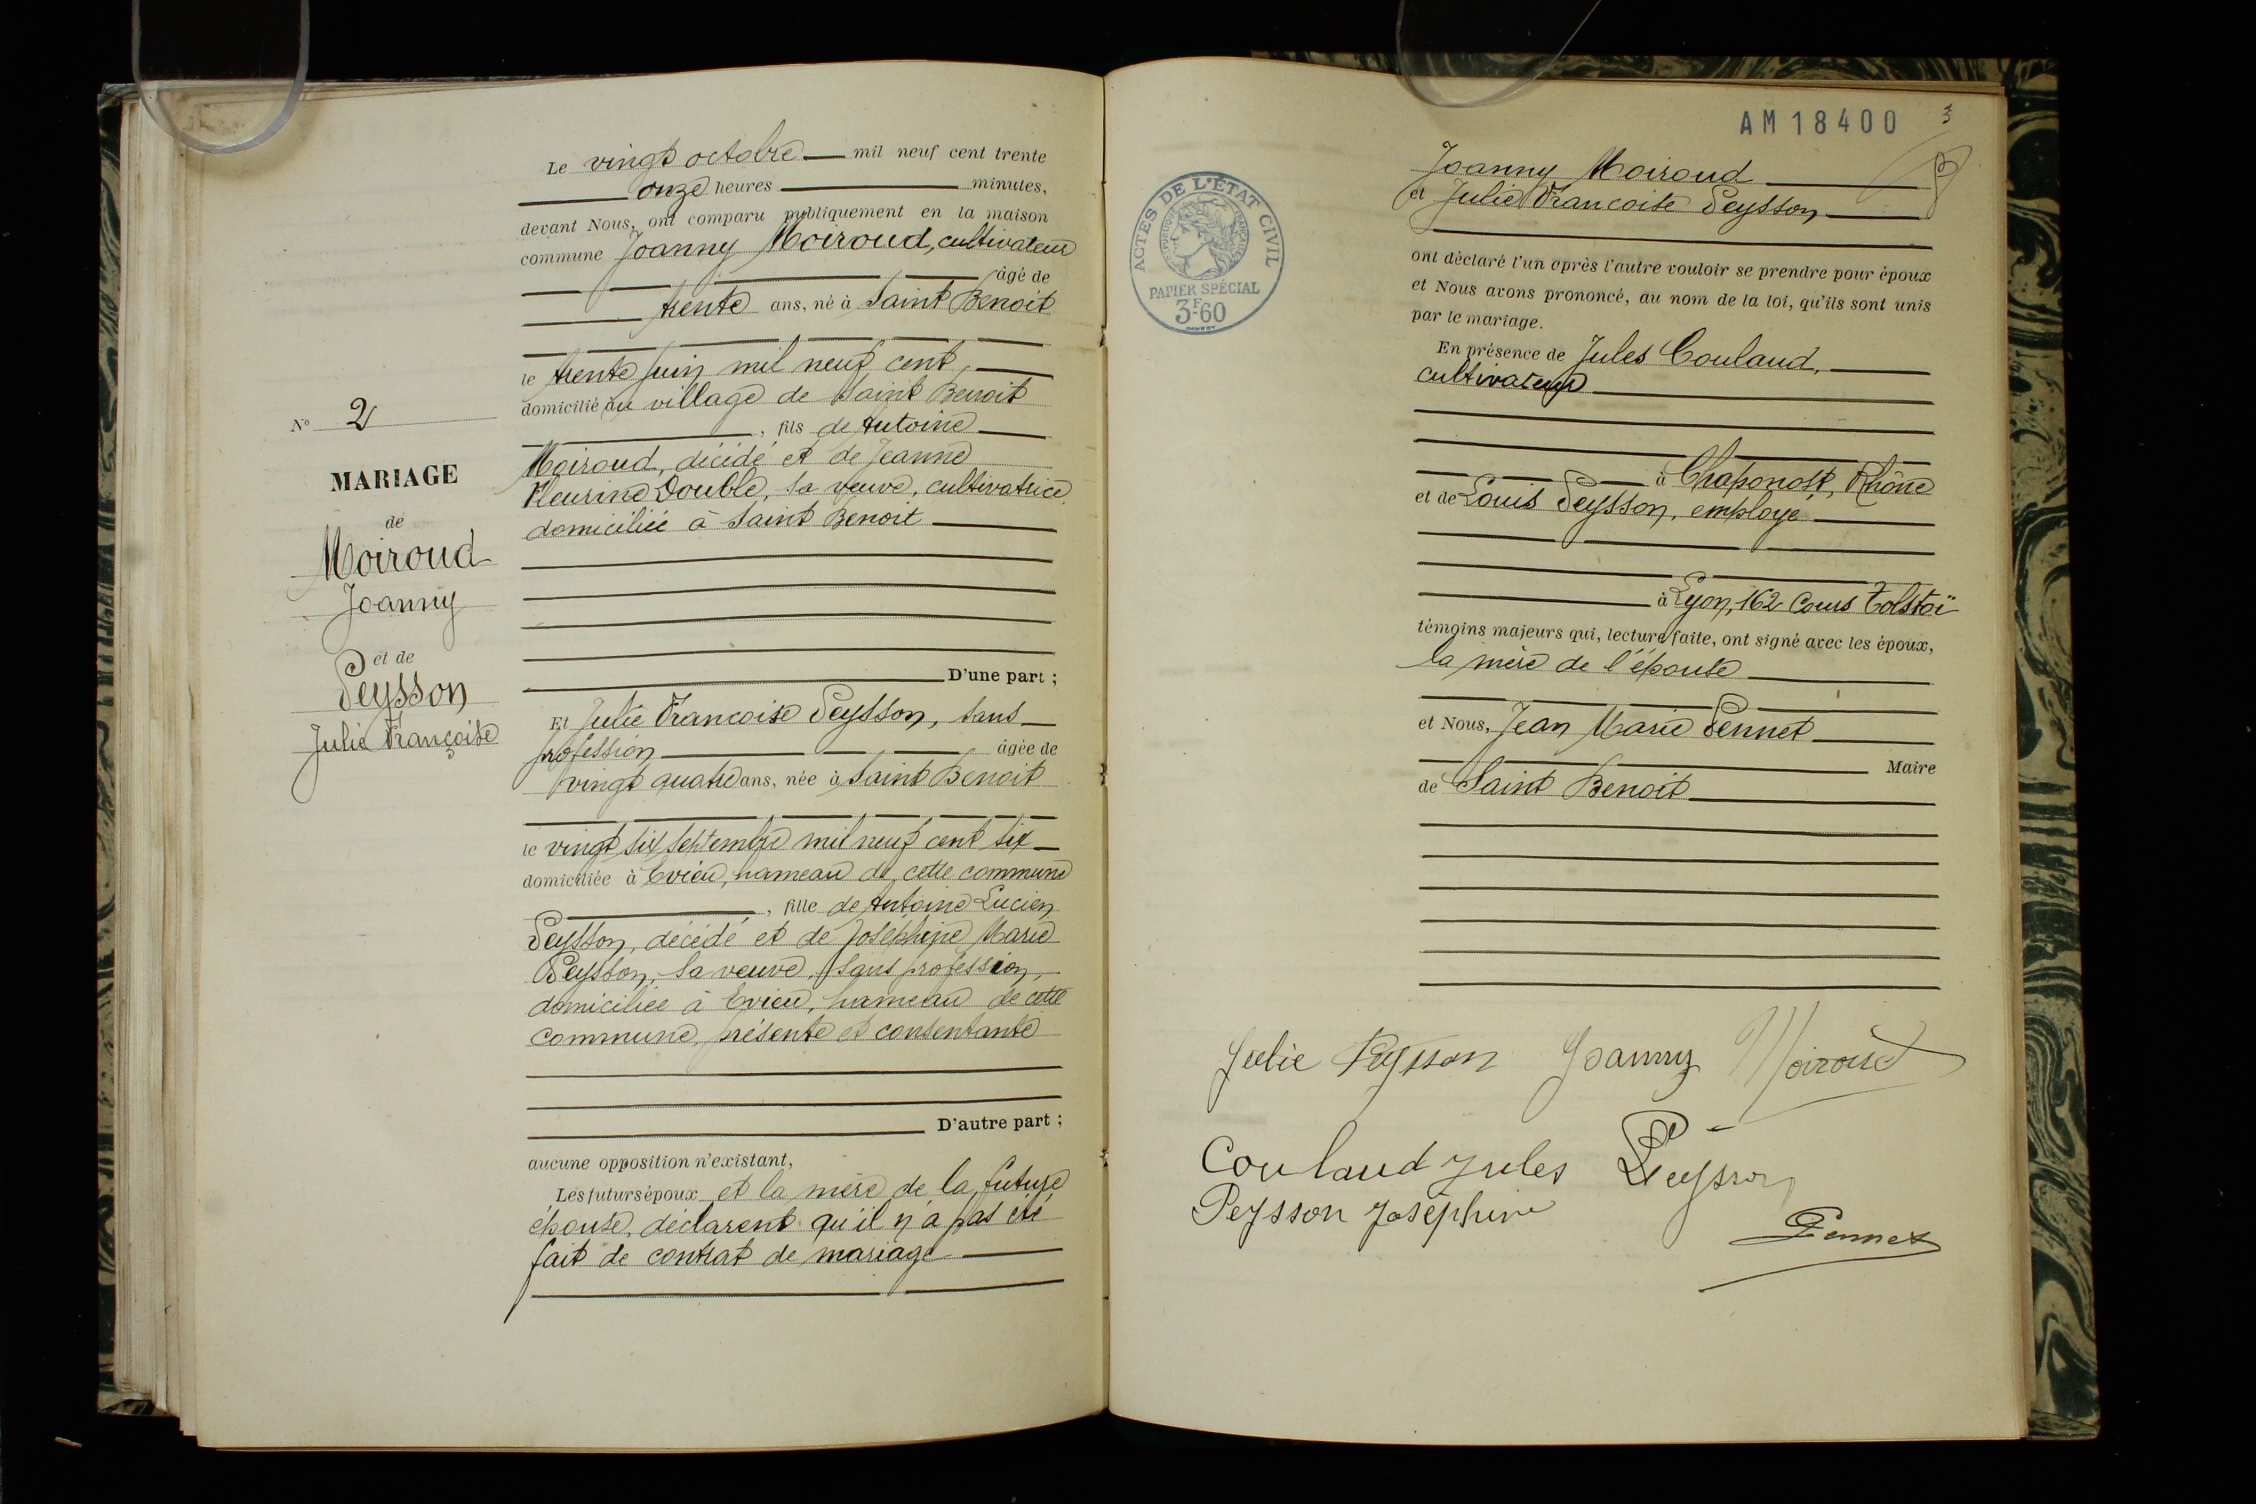 Le vingt octobre mil neuf cent trente
onze heures minutes,
devant Nous, ont comparu publiquement en la maison
commune Joanny Moiroud, cultivateur
âgé de
trente ans, né à Saint Benoit
le trente juin mil neuf cent,
domicilié au village de Saint Benoit
, fils de Antoine
Moiroud, décédé et de Jeanne
Fleurine Double, sa veuve, cultivatrice
domiciliée à Saint Benoit
D'une part ;
Et Julie Françoise Peysson, sans
profession âgée de
vingt quatre ans, née à Saint Benoit
le vingt six septembre mil neuf cent six
domiciliée à Evieu, hameau de cette commune
, fille de Antoine Lucien
Peysson, décédé et de Joséphine Marie
Peysson, sa veuve, sans profession,
domiciliée à Evieu, hameau de cette
commune, présente et consentante
D'autre part ;
aucune opposition n'existant,
Les futurs époux et la mère de la future
épouse, déclarent qu'il n'a pas été
fait de contrat de mariage
N° 2
MARIAGE
de
Moiroud
Joanny
et de
Peysson
Julie Françoise
AM 18400 3
ACTES DE L'ÉTAT CIVIL
RÉPUBLIQUE FRANÇAISE
PAPIER SPÉCIAL
3F60
Joanny Moiroud
et Julie Francoise Peysson
ont déclaré l'un après l'autre vouloir se prendre pour époux
et Nous avons prononcé, au nom de la loi, qu'ils sont unis
par le mariage.
En présence de Jules Coulaud,
cultivateur
à Chaponost, Rhône
et de Louis Peysson, employé
à Lyon, 162 Cours Tolstoï
témoins majeurs qui, lecture faite, ont signé avec les époux,
la mère de l'épouse
et Nous, Jean Marie Pennet
Maire
de Saint Benoit
Julie Peysson Joanny Moiroud
Coulaud Jules L Peysson
Peysson Joséphine
Pennet